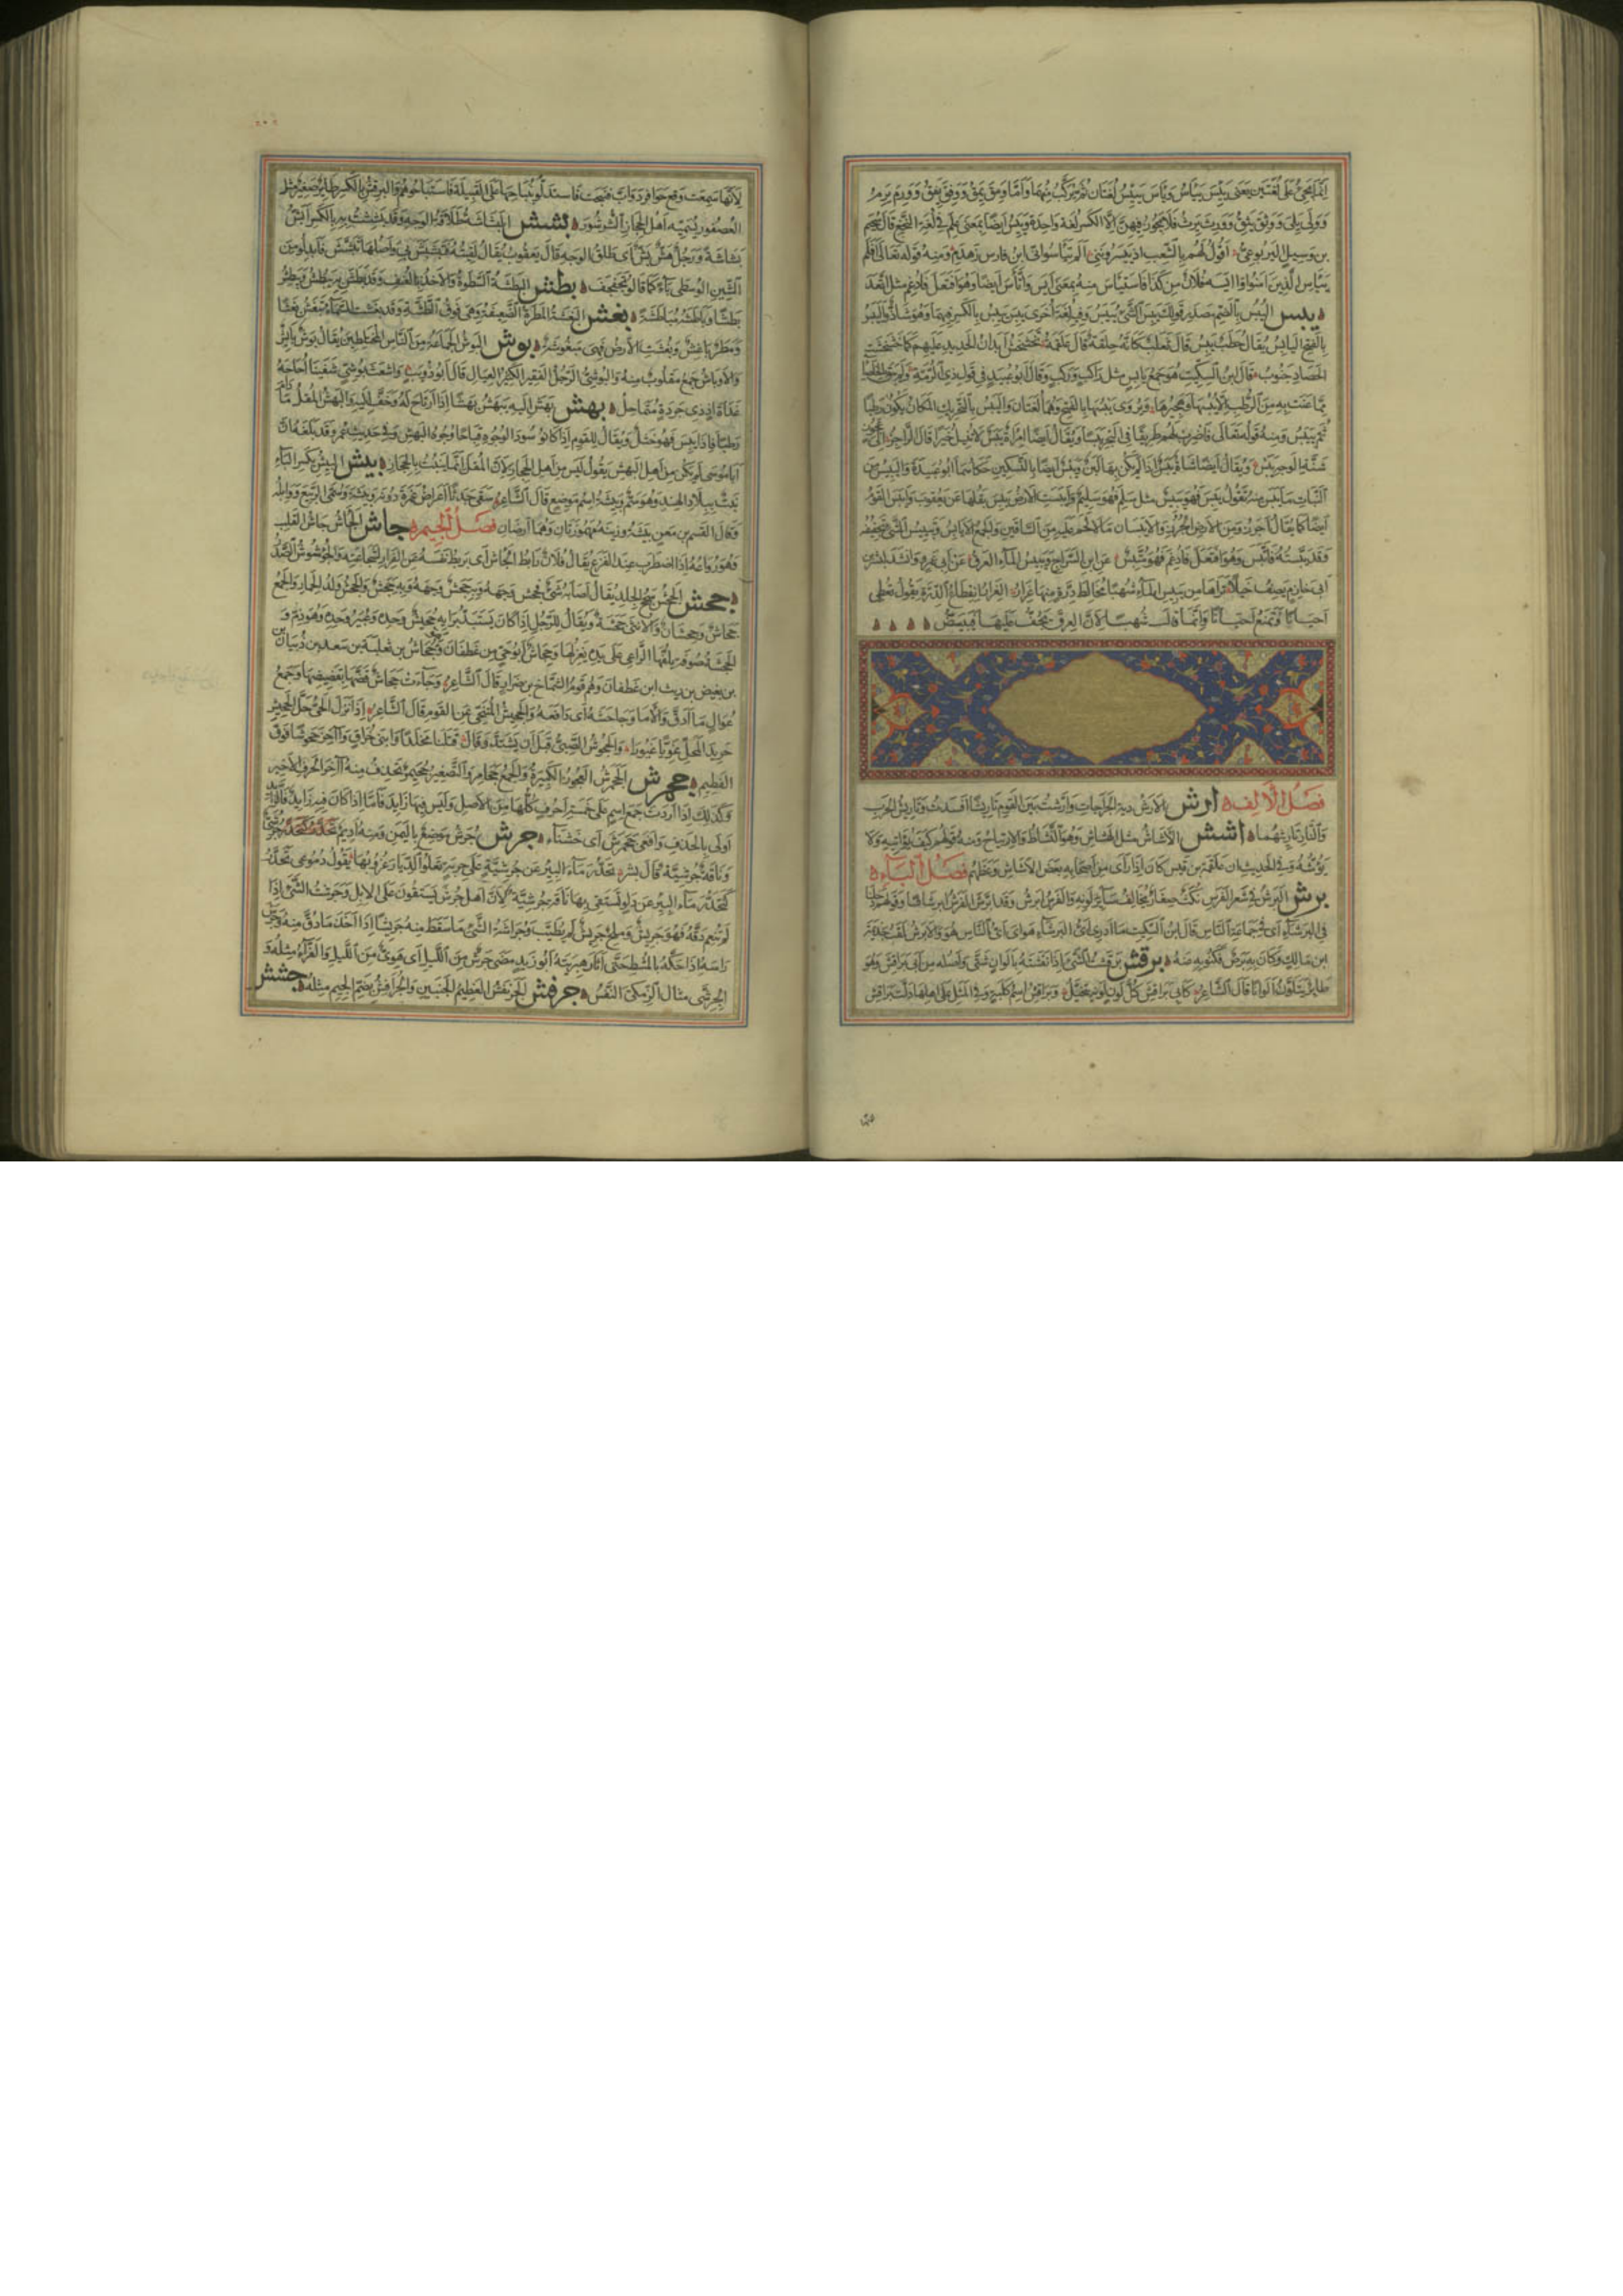 إنما يجيء على لغتين يعني يئس ييأس ويأس ييئس لغتان ثم يركب منهما وأما ومق يمق ووفق يفق وورم يرم
وولي يلي ووثق يثق وورث يرث فلا يجوز فيهن إلا الكسر لغة واحدة ويئس أيضا بمعنى علم في لغة النخع قال سحيم
بن وثيل اليربوعي أقول لهم بالشعب إذ ييسرونني ألم تيأسوا أني ابن فارس زهدم ومنه قوله تعالى أفلم
ييأس الذين آمنوا وآيسه فلان من كذا فاستيأس منه بمعنى أيس واتأس أيضا وهو افتعل فأدغم مثل اتعد
يبس اليبس بالضم مصدر قولك يبس الشيء ييبس وفي لغة أخرى يبس ييبس بالكسر فيهما وهو شاذ واليبس
بالفتح اليابس يقال حطب يبس قال ثعلب كأنه خلقة قال علقمة تخشخش أبدان الحديد عليهم كما خشخشت
الحصاد جنوب قال ابن السكيت هو جمع يابس مثل راكب وركب وقال أبو عبيد في قول ذي الرمة ولم يبق بالخلصاء
مما عنت به من الرطب إلا يبسها وهجيرها ويروى يبسها بالفتح وهما لغتان واليبس بالتحريك المكان يكون رطبا
ثم ييبس ومنه قوله تعالى فاضرب لهم طريقا في البحر يبسا ويقال أيضا امرأة يبس لا تنيل خيرا قال الراجز إلى عجوز
شنة الوجه يبس ويقال أيضا شاة يبس إذا لم يكن بها لبن ويبس أيضا بالتسكين حكاهما أبو عبيدة واليبيس من
النبات ما يبس منه تقول يبس فهو يبيس مثل سلم فهو سليم وأيبست الأرض يبس بقلها عن يعقوب وأيبس القوم
أيضا كما يقال أجرزوا من الأرض الجرز والأيبسان ما لا لحم عليه من الساقين والجمع الأيابس وتيبيس الشيء تجفيفه
وقد يبسته فاتبس وهو افتعل فأدغم فهو متبس عن ابن السراج ويبيس الماء العرق عن أبي عمرو وأنشد لبشر بن
أبي خازم يصف خيلا تراها من يبيس الماء شهبا مخالط درة منها غرار الغرار انقطاع الدرة يقول تعطي
أحيانا وتمنع أحيانا وإنما قال شهبا لأن العرق يجف عليها فيبيض
فصل الألف أرش الأرش دية الجراحات وأرشت بين القوم تأريشا أفسدت وتأريش الحرب
والنار تأريثهما أشش الأشاش مثل الهشاش وهو النشاط والارتياح
فصل الباء
برش البرش في شعر الفرس نكت صغار تخالف سائر لونه والفرس أبرش وقد ابرش الفرس ابرشاشا وقولهم دخلنا
في البرشاء أي في جماعة الناس قال ابن السكيت ما أدري أي البرشاء هو أي أي الناس هو والأبرش لقب جذيمة
ابن مالك وكان به برص فكنوا به عنه برقش برقشت الشيء إذا نقشته بألوان شتى وأصله من أبي براقش وهو
طائر يتلون ألوانا قال الشاعر كأبي براقش كل لون لونه يتخيل وبراقش اسم كلبة وفي المثل على أهلها دلت براقش
لأنها سمعت وقع حوافر دواب فنبحت فاستدلوا بنباحها على القبيلة فاستباحوهم والبرقش بالكسر طائر صغير مثل
العصفور يسميه أهل الحجاز الشرشور بشش البشاشة طلاقة الوجه وقد بششت به بالكسر أبش
بشاشة ورجل هش بش أي طلق الوجه قال يعقوب يقال لقيته فتبشبش بي وأصلها تبشش فأبدلوا من
الشين الوسطى باء كما قالوا تجفجف بطش البطشة السطوة والأخذ بالعنف وقد بطش به يبطش ويبطش
بطشا وباطشه مباطشة بغش البغشة المطرة الضعيفة وهي فوق الطشة وقد بغشت السماء تبغش بغشا
ومطر باغش وبغشت الأرض فهي مبغوشة بوش البوش الجماعة من الناس المختلطين يقال بوش بائش
والأوباش جمع مقلوب منه والبوشي الرجل الفقير الكثير العيال قال أبو ذؤيب وأشعث بوشي شفينا أحاحه
غداة إذ ذي جردة متماحل بهش بهش إليه يبهش بهشا إذا ارتاح له وخف إليه والبهش المقل ما دام
رطبا فإذا يبس فهو خشل ويقال للقوم إذا كانوا سود الوجوه قباحا وجوه البهش وفي حديث عمر وقد بلغه أن
أبا موسى لم يكن من أهل البهش يقول ليس من أهل الحجاز لأن المقل إنما ينبت بالحجاز بيش البيش بكسر الباء
نبت ببلاد الهند وهو سم وبيشة اسم موضع قال الشاعر سقى جدثا أعراض غمرة دونه وبيشة وسمي الربيع ووابله
وقال القسم بن معن بيشة وزئنة مهموزتان وهما أرضان فصل الجيم جأش الجأش جأش القلب
وهو رواعه إذا اضطرب عند الفزع يقال فلان رابط الجأش أي يربط نفسه عن الفرار لشجاعته والجؤشوش الصدر
جحش الجحش سحج الجلد يقال أصابه شيء فجحش وجهه وبه جحش والجحش ولد الحمار والجمع
جحاش وجحشان والأنثى جحشة ويقال للرجل إذا كان يستبد برأيه جحيش وحده وعيير وحده وهو ذم و
الجحشة صوفة يلفها الراعي على يده يغزلها وجحاش أبو حي من غطفان وهو جحاش بن ثعلبة بن سعد بن ذبيان
بن بغيض بن ريث ابن غطفان وهم قوم الشماخ بن ضرار قال الشاعر وجاءت جحاش قضها بقضيضها وجمع
عوال ما أدق وألأما وجاحشه أي دافعه والجحيش المتنحي عن القوم قال الشاعر إذا نزل الحي حل الجحيش
حريد المحل غويا غيورا والجحوش الصبي قبل أن يشتد وقال قتلنا مخلدا وابني حراق وآخر جحوشا فوق
الفطيم جحمرش الجحمرش العجوز الكبيرة والجمع جحامر والتصغير جحيمر يحذف منه آخر الحرف الأخير
وكذلك إذا أردت جمع اسم على خمسة أحرف كلها من الأصل وليس فيها زايد فأما إذا كان فيه زايد فالزايد
أولى بالحذف وأفعى جحمرش أي خشناء جرش جرش موضع باليمن ومنه أديم جرشي
وناقة جرشية قال بشر تحدر ماء البئر عن جرشية على جربة تعلو الديار غروبها يقول دموعي تحدر
كتحدر ماء البئر عن دلو تستقى بها ناقة جرشية لأن أهل جرش يستقون على الإبل وجرشت الشيء إذا
لم تنعم دقه فهو جريش وملح جريش لم يطيب وجراشة الشيء ما سقط منه جريشا إذا أخذ ما دق منه وجرش
رأسه إذا حكه بالمشط حتى أثار هبريته أبو زيد مضى جرش من الليل أي هوي من الليل والفراء مثله و
الجرشى مثال الزمكى النفس جرفش الجرنفش العظيم الجنبين والجرافش بضم الجيم مثله جشش